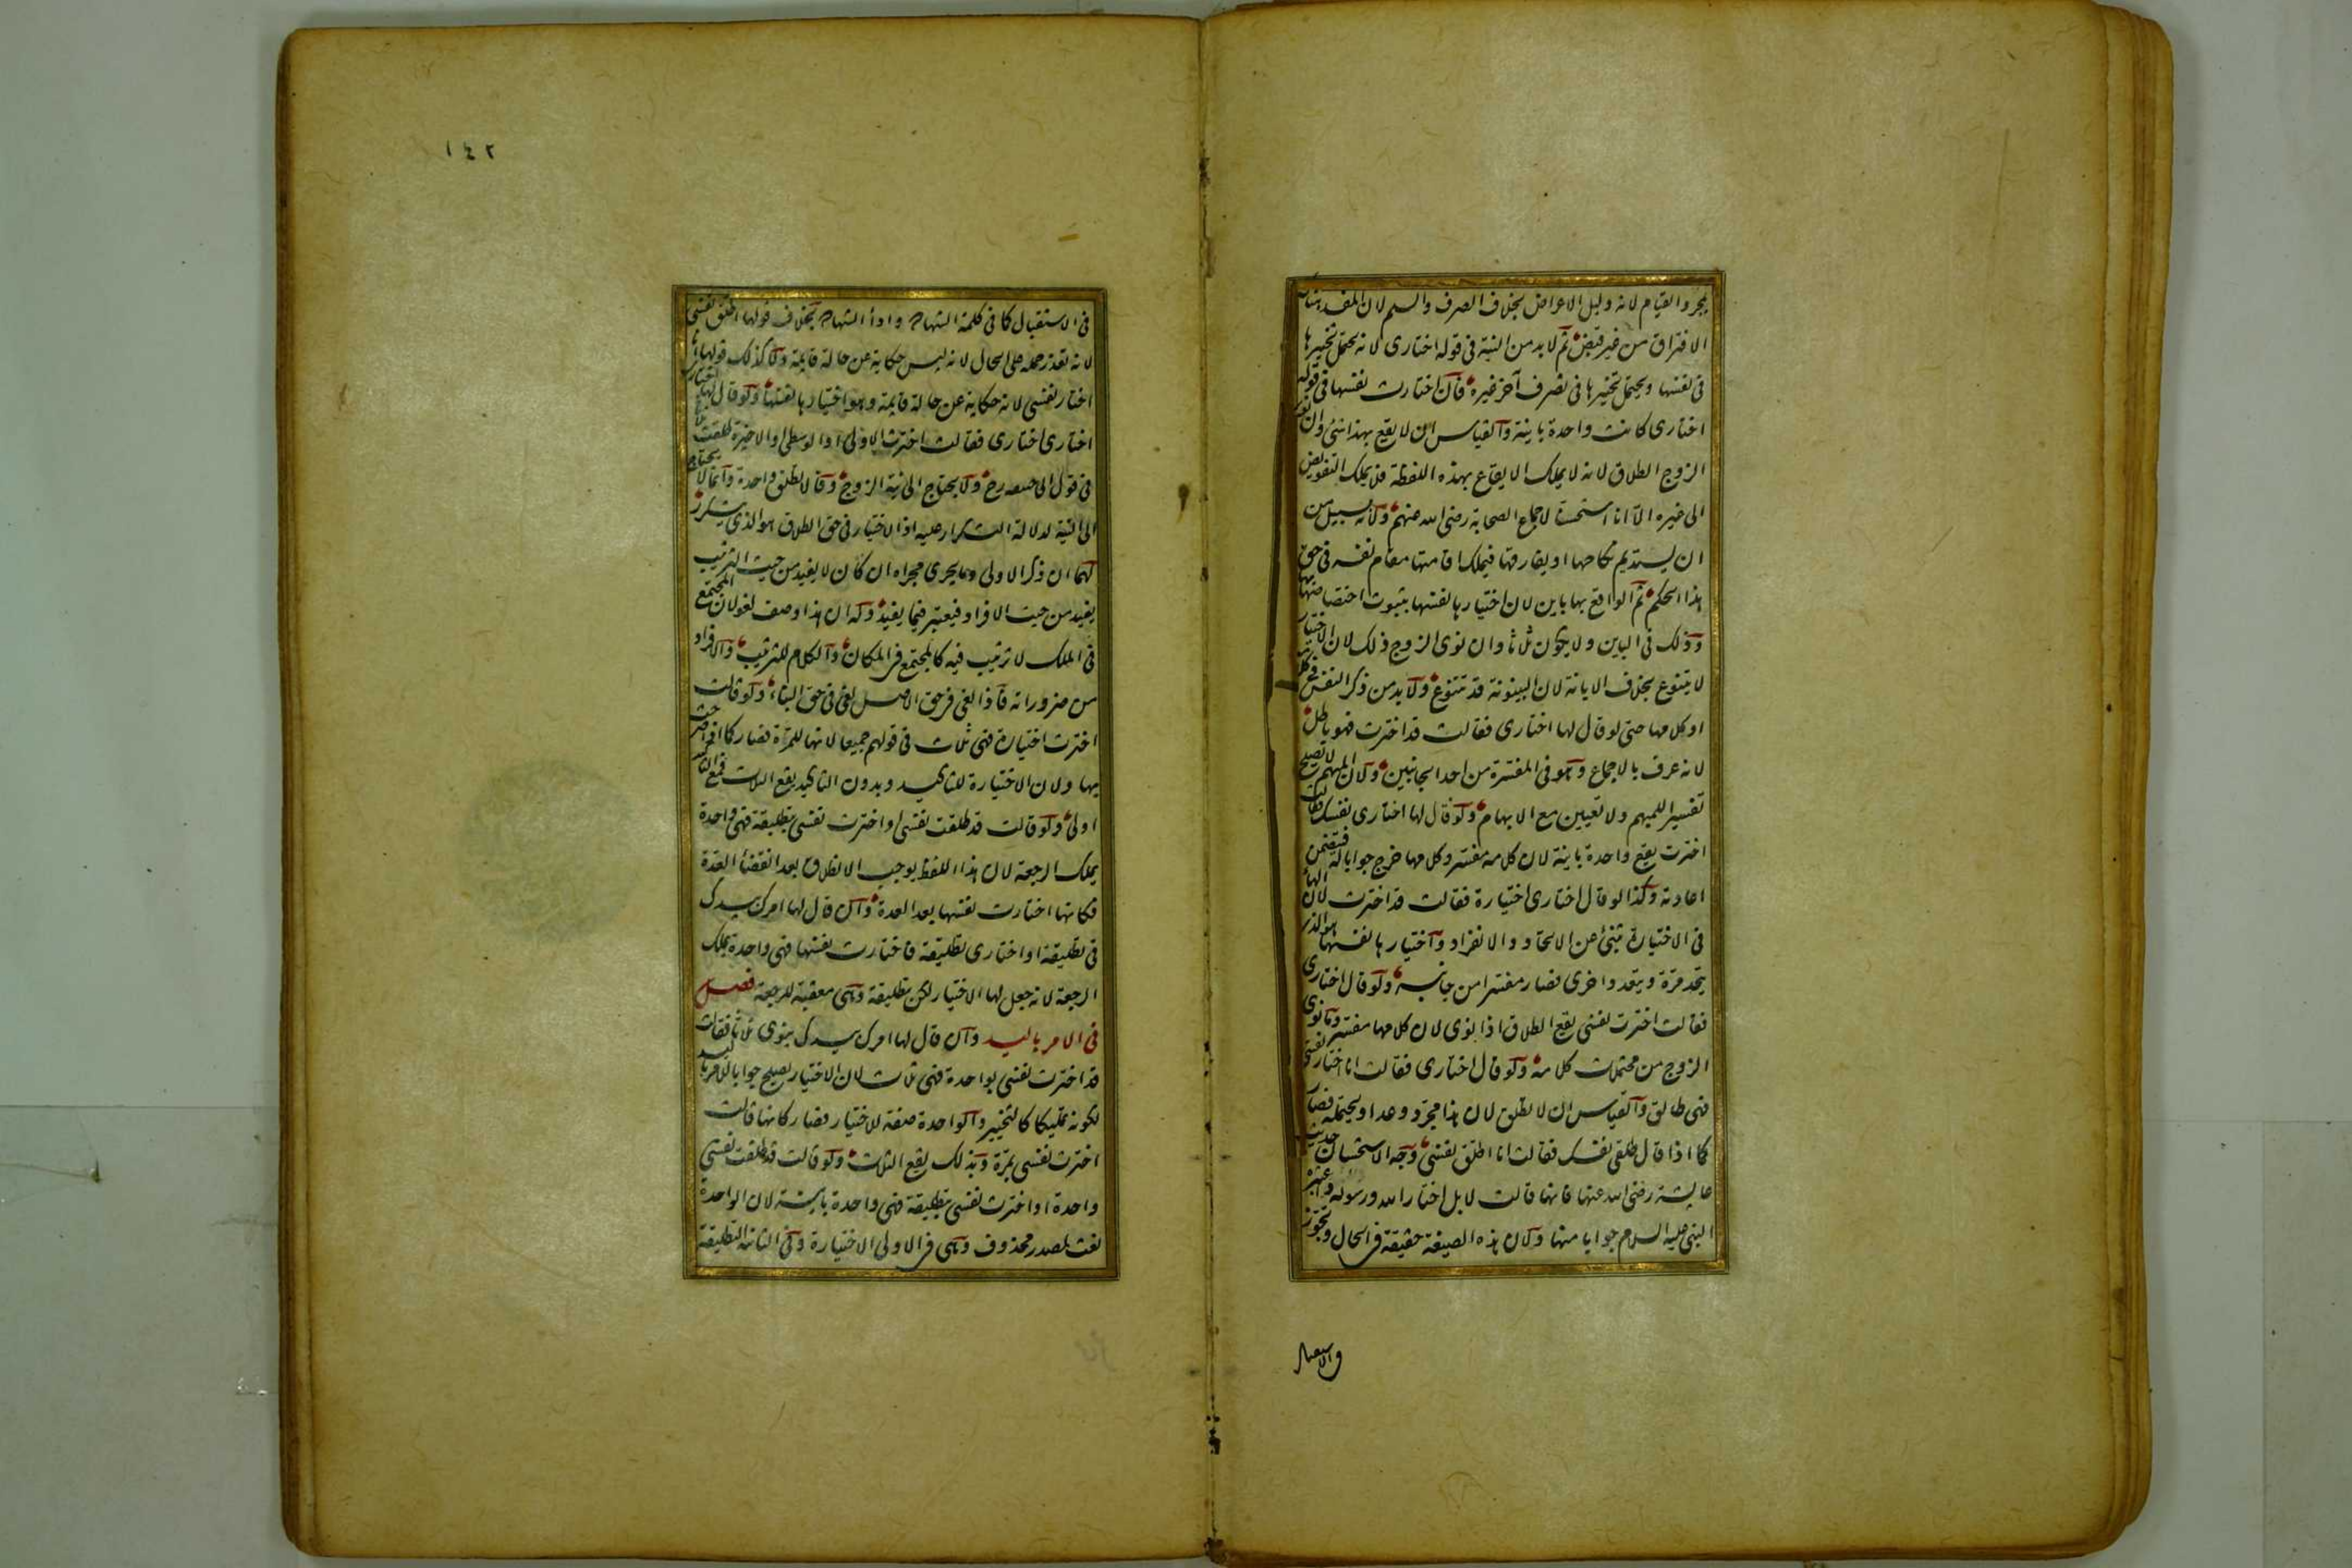 بمجرد القيام لانه دليل الاعراض بخلاف الصرف والسلم لان المفسد هناك
الافتراق من غير قبض ثم لا بد من النية في قوله اختاري لانه يحتمل تخييرها
في نفسها ويحتمل تخييرها في تصرف آخر غيره فان اختارت نفسها في قوله
اختاري كانت واحدة باينة والقياس ان لا يقع بهذا شئ وان نوى
الزوج الطلاق لانه لا يملك الايقاع بهذه اللفظة فلا يملك التفويض
الى غيره الا انا استحسنا لاجماع الصحابة رضي الله عنهم ولانه بسبيل من
ان يستديم نكاحها او يفارقها فيملك اقامتها مقام نفسه في حق
هذا الحكم ثم الواقع بها باين لان اختيارها نفسها بثبوت اختصاصها بها
وذلك في الباين ولا يكون ثلاثا وان نوى الزوج ذلك لان الاختيار
لا يتنوع بخلاف الابانة لان البينونة قد تتنوع ولا بد من ذكر النفس في كلامه
او كلامها حتى لو قال لها اختاري فقالت قد اخترت فهو باطل
لانه عرف بالاجماع وهو في المفسرة من احد الجانبين ولان المبهم لا تصلح
تفسيرا للمبهم ولا تعيين مع الابهام ولو قال لها اختاري نفسك فقالت
اخترت يقع واحدة باينة لان كلامه مفسر وكلامها خرج جوابا له فيتضمن
اعادته وكذا لو قال اختاري اختيارة فقالت قد اخترت لان الهاء
في الاختيارة تنبئ عن الاتحاد والانفراد واختيارها نفسها هو الذي
يتحد مرة ويتعدد اخرى فصار مفسرا من جانبه ولو قال اختاري
فقالت اخترت نفسي يقع الطلاق اذا نوى لان كلامها مفسر وما نوى
الزوج من محتملات كلامه ولو قال اختاري فقالت انا اختار نفسي
فهي طالق والقياس ان لا تطلق لان هذا مجرد وعد او يحتمله فصار
كما اذا قال طلقي نفسك فقالت انا اطلق نفسي وجه الاستحسان حديث
عايشة رضي الله عنها فانها قالت لا بل اختار الله ورسوله واعتبره
النبي عليه السلام جوابا منها ولان هذه الصيغة حقيقة في الحال وتجوز
١٤٢
في الاستقبال كما في كلمة الشهادة واداء الشهادة بخلاف قولها اطلق نفسي
لانه تعذر حمله على الحال لانه ليس حكاية عن حالة قايمة ولا كذلك قولها انا
اختار نفسي لانه حكاية عن حالة قايمة وهو اختيارها نفسها ولو قال لها اختاري
اختاري اختاري فقالت اخترت الاولى او الوسطى او الاخيرة طلقت ثلاثا
في قول ابي حنيفة رح ولا يحتاج الى نية الزوج وقالا تطلق واحدة وانما لا يحتاج
الى النية لدلالة التكرار عليه اذ الاختيار في حق الطلاق هو الذي يتكرر
لهما ان ذكر الاولى وما يجري مجراه ان كان لا يفيد من حيث الترتيب
يفيد من حيث الافراد فيعتبر فيما يفيد وله ان هذا وصف لغو لان المجتمع
في الملك لا ترتيب فيه كالمجتمع في المكان والكلام للترتيب والافراد
من ضروراته فاذا لغى في حق الاصل لغى في حق البناء ولو قالت
اخترت اختيارة فهي ثلاث في قولهم جميعا لانها للمرة فصار كما اذا صرحت
بها ولان الاختيارة للتاكيد وبدون التاكيد يقع الثلاث فمع التاكيد
اولى ولو قالت قد طلقت نفسي او اخترت نفسي بتطليقة فهي واحدة
يملك الرجعة لان هذا اللفظ يوجب الانطلاق بعد انقضاء العدة
فكانها اختارت نفسها بعد العدة وان قال لها امرك بيدك
في تطليقة او اختاري تطليقة فاختارت نفسها فهي واحدة يملك
الرجعة لانه جعل لها الاختيار لكن بتطليقة وهي معقبة للرجعة فصل
في الامر باليد وان قال لها امرك بيدك ينوي ثلاثا فقالت
قد اخترت نفسي بواحدة فهي ثلاث لان الاختيار يصلح جوابا للامر باليد
لكونه تمليكا كالتخيير والواحدة صفة للاختيار فصار كانها قالت
اخترت نفسي بمرة وبذلك يقع الثلاث ولو قالت قد طلقت نفسي
واحدة او اخترت نفسي بتطليقة فهي واحدة باينة لان الواحدة
نعت لمصدر محذوف وهي في الاولى الاختيارة وفي الثانية التطليقة